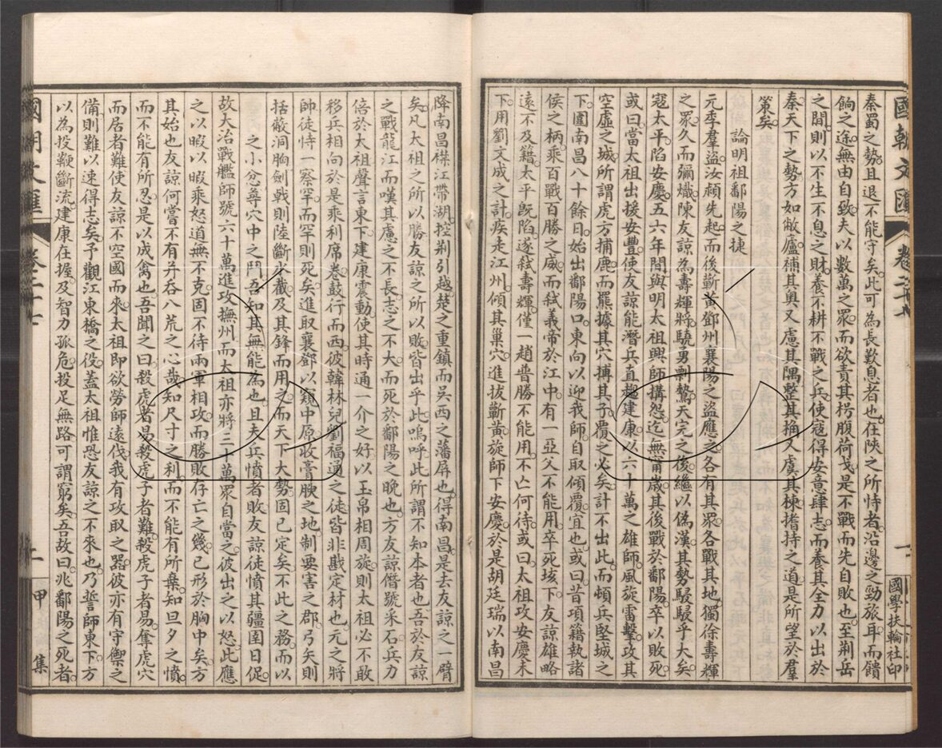 國朝文匯 卷二十七 一 國學扶輪社印
秦蜀之勢且退不能守矣此可為長歎息者也在陝之所恃者沿邊之勁旅耳而饋
餉之途無由自致夫以數萬之眾而欲責其枵腹荷戈是不戰而先自敗也至荆岳
之間則以不生不息之財養不耕不戰之兵使寇得安意肆志而養其全力以出於
秦天下之勢方如敝廬補其奧又慮其隅整其桷又虞其棟撐持之道是所望於羣
策矣
論明祖鄱陽之捷
元季羣盜汝潁先起而後蘄黃鄧州襄陽之盜應之各有其眾各戰其地獨徐壽輝
之眾久而彌熾陳友諒為壽輝將驍勇剽鷙天完之後繼以偽漢其勢駸駸乎大矣
寇太平陷安慶五六年間與明太祖興師搆怨迄無甯歲其後戰於鄱陽卒以敗死
或曰當太祖出援安豐使友諒能潛兵直趨建康以六十萬之雄師風旋雷擊攻其
空虛之城所謂虎方捕鹿而羆據其穴搏其子覆之必矣計不出此而頓兵堅城之
下圍南昌八十餘日始出鄱陽口東向以迎我師自取傾覆宜也或曰昔項籍執諸
侯之柄乘百戰百勝之威而弒義帝於江中有一亞父不能用卒死垓下友諒雄略
遠不及籍太平既陷遂弒壽輝僅一趙普勝不能用不亡何待或曰太祖攻安慶未
下用劉文成之計疾走江州傾其巢穴進拔蘄黃旋師下安慶於是胡廷瑞以南昌
降南昌襟江帶湖控荆引越楚之重鎮而吳西之藩屏也得南昌是去友諒之一臂
矣凡太祖之所以勝友諒之所以敗皆出乎此嗚呼此所謂不知本者也吾於友諒
之戰龍江而嘆其慮之不長志之不大而死於鄱陽之晚也方友諒僭號采石兵力
倍於太祖聲言東下建康震動使其時通一介之好以玉帛相周旋則太祖必不敢
移兵相向於是乘利席卷鼓行而西彼韓林兒劉福通之徒皆非戡定材也元之將
帥徒恃一察罕而罕則死矣進取襄鄧以窺中原收膏腴之地制要害之郡弓矢則
括蔽洞胸劍戟則陸斷水截及其鋒而用之而天下大勢固已定矣不此之務而以
之小忿尋穴中之鬥吾知其無能為也且夫兵憤者敗友諒徒憤其疆圉日促
故大治戰艦師號六十萬進攻撫州而太祖亦將二十萬眾自當之彼出之以怒此應
之以暇以暇乘怒道無不克固不待兩軍相攻而勝敗存亡之幾已形於胸中矣方
其始也友諒何嘗不有并吞八荒之心哉知尺寸之利而不能有所棄知旦夕之憤
而不能有所忍是以成禽也吾聞之曰殺虎者易殺虎子者難殺虎子者易奪虎穴
而居者難使友諒不空國而來太祖即欲勞師遠伐我有攻取之器彼亦有守禦之
備則難以速得志矣予觀江東橋之役蓋太祖惟恐友諒之不來也乃誓師東下方
以為投鞭斷流建康在握及智力孤危投足無路可謂窮矣吾故曰兆鄱陽之死者
國朝文匯 卷二十七 二 甲集